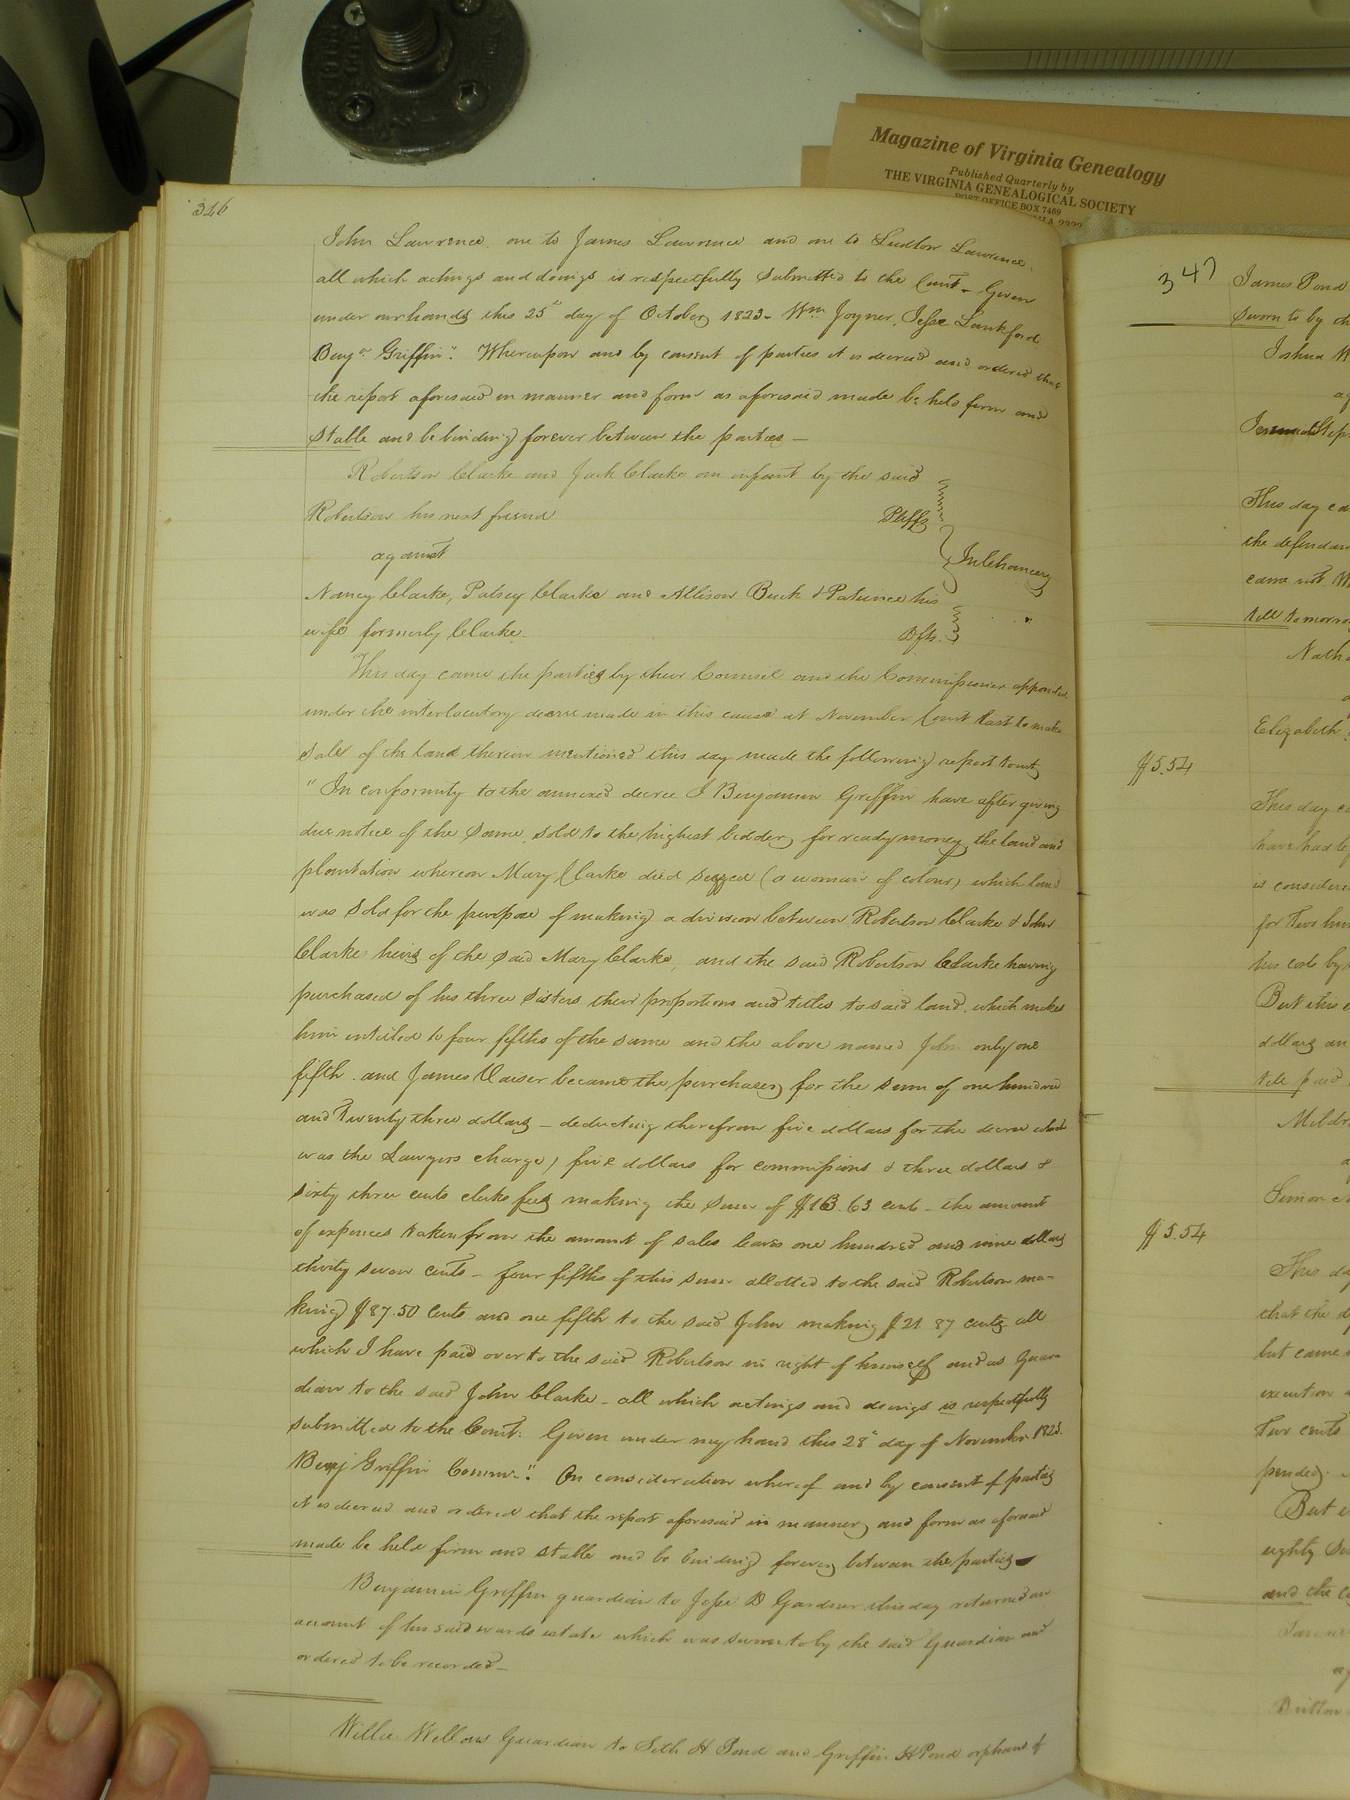 Magazine of Virginia Genealogy
Published Quarterly by
THE VIRGINIA GENEALOGICAL SOCIETY
POST OFFICE BOX 7469
346
John Lawrence, one to James Lawrence and one to Ludlow Lawrence
all which actings and doings is respectfully submitted to the Court - Given
under our hands this 25th day of October 1823 - Wm Joyner, Jesse Lankford
Benjn Griffin". Whereupon and by consent of parties it is decreed and ordered that
the report aforesaid in manner and form as aforesaid made be held firm and
stable and be binding forever between the parties —
Robertson Clarke and Jack Clarke an infant by the said
Robertson his next friend Pltffs
against In Chancery
Nancy Clarke, Patsey Clarke and Allison Buck & Patience his
wife formerly Clarke. Dfts.
This day came the parties by their Counsel and the Commissioner appointed
under the interlocutory decree made in this cause at November Court last to make
sale of the land therein mentioned this day made the following report towit,
"In conformity to the annexed decree I Benjamin Griffin have after giving
due notice of the same, sold to the highest bidder, for ready money, the land and
plantation whereon Mary Clarke died seyzed (a woman of colour) which land
was sold for the purpose of making a division between Robertson Clarke & John
Clarke heirs of the said Mary Clarke, and the said Robertson Clarke having
purchased of his three sisters their proportions and titles to said land, which makes
him intitled to four fifths of the same and the above named John only one
fifth. and James Vaiser became the purchaser, for the sum of one hundred
and Twenty three dollars — deducting therefrom five dollars for the decree which
was the Lawyers charge, five dollars for commissions & three dollars &
sixty three cents clerks fees making the sum of $13.63 cents - the amount
of expences taken from the amount of sales leaves one hundred and nine dollars
thirty seven cents - four fifths of this sum allotted to the said Robertson ma-
king $87.50 cents and one fifth to the said John making $21.87 cents all
which I have paid over to the said Robertson in right of himself and as Guar-
dian to the said John Clarke - all which actings and doings is respectfully
submitted to the Court. Given under my hand this 28th day of November 1823.
Benj Griffin Commr." On consideration whereof and by consent of parties
it is decreed and ordered that the report aforesaid in manner, and form as aforesaid
made be held firm and stable and be binding forever between the parties —
Benjamin Griffin guardian to Jesse D Gardner this day returned an
account of his said wards estate which was sworn to by the said Guardian and
ordered to be recorded —
Willie Wellons Guardian to Seth H Pond and Griffin H Pond orphans of
347
James Pond
sworn to by th
Joshua W
This day ca
the defendan
came not. W
till tomorrow
Nath
Elizabeth
$5.54
This day ca
have had le
is consider
for Two hun
his cost by
But this e
dollars an
till paid
Mildr
Simon
$5.54
This day
that the d
but came
execution
Two cents
pended.
But
eighty
and the co
Britton